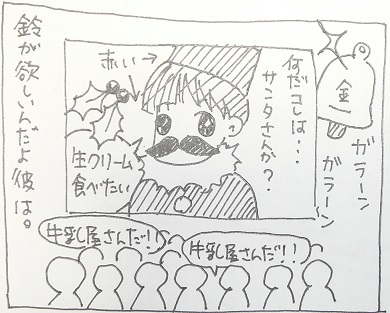 鈴が欲しいんだよ彼は。
赤い→
何だコレは・・・
サンタさんか？
金
ガラーン
ガラーン
生クリーム
食べたい
牛乳し屋さんだ！
牛乳し屋さんだ！！